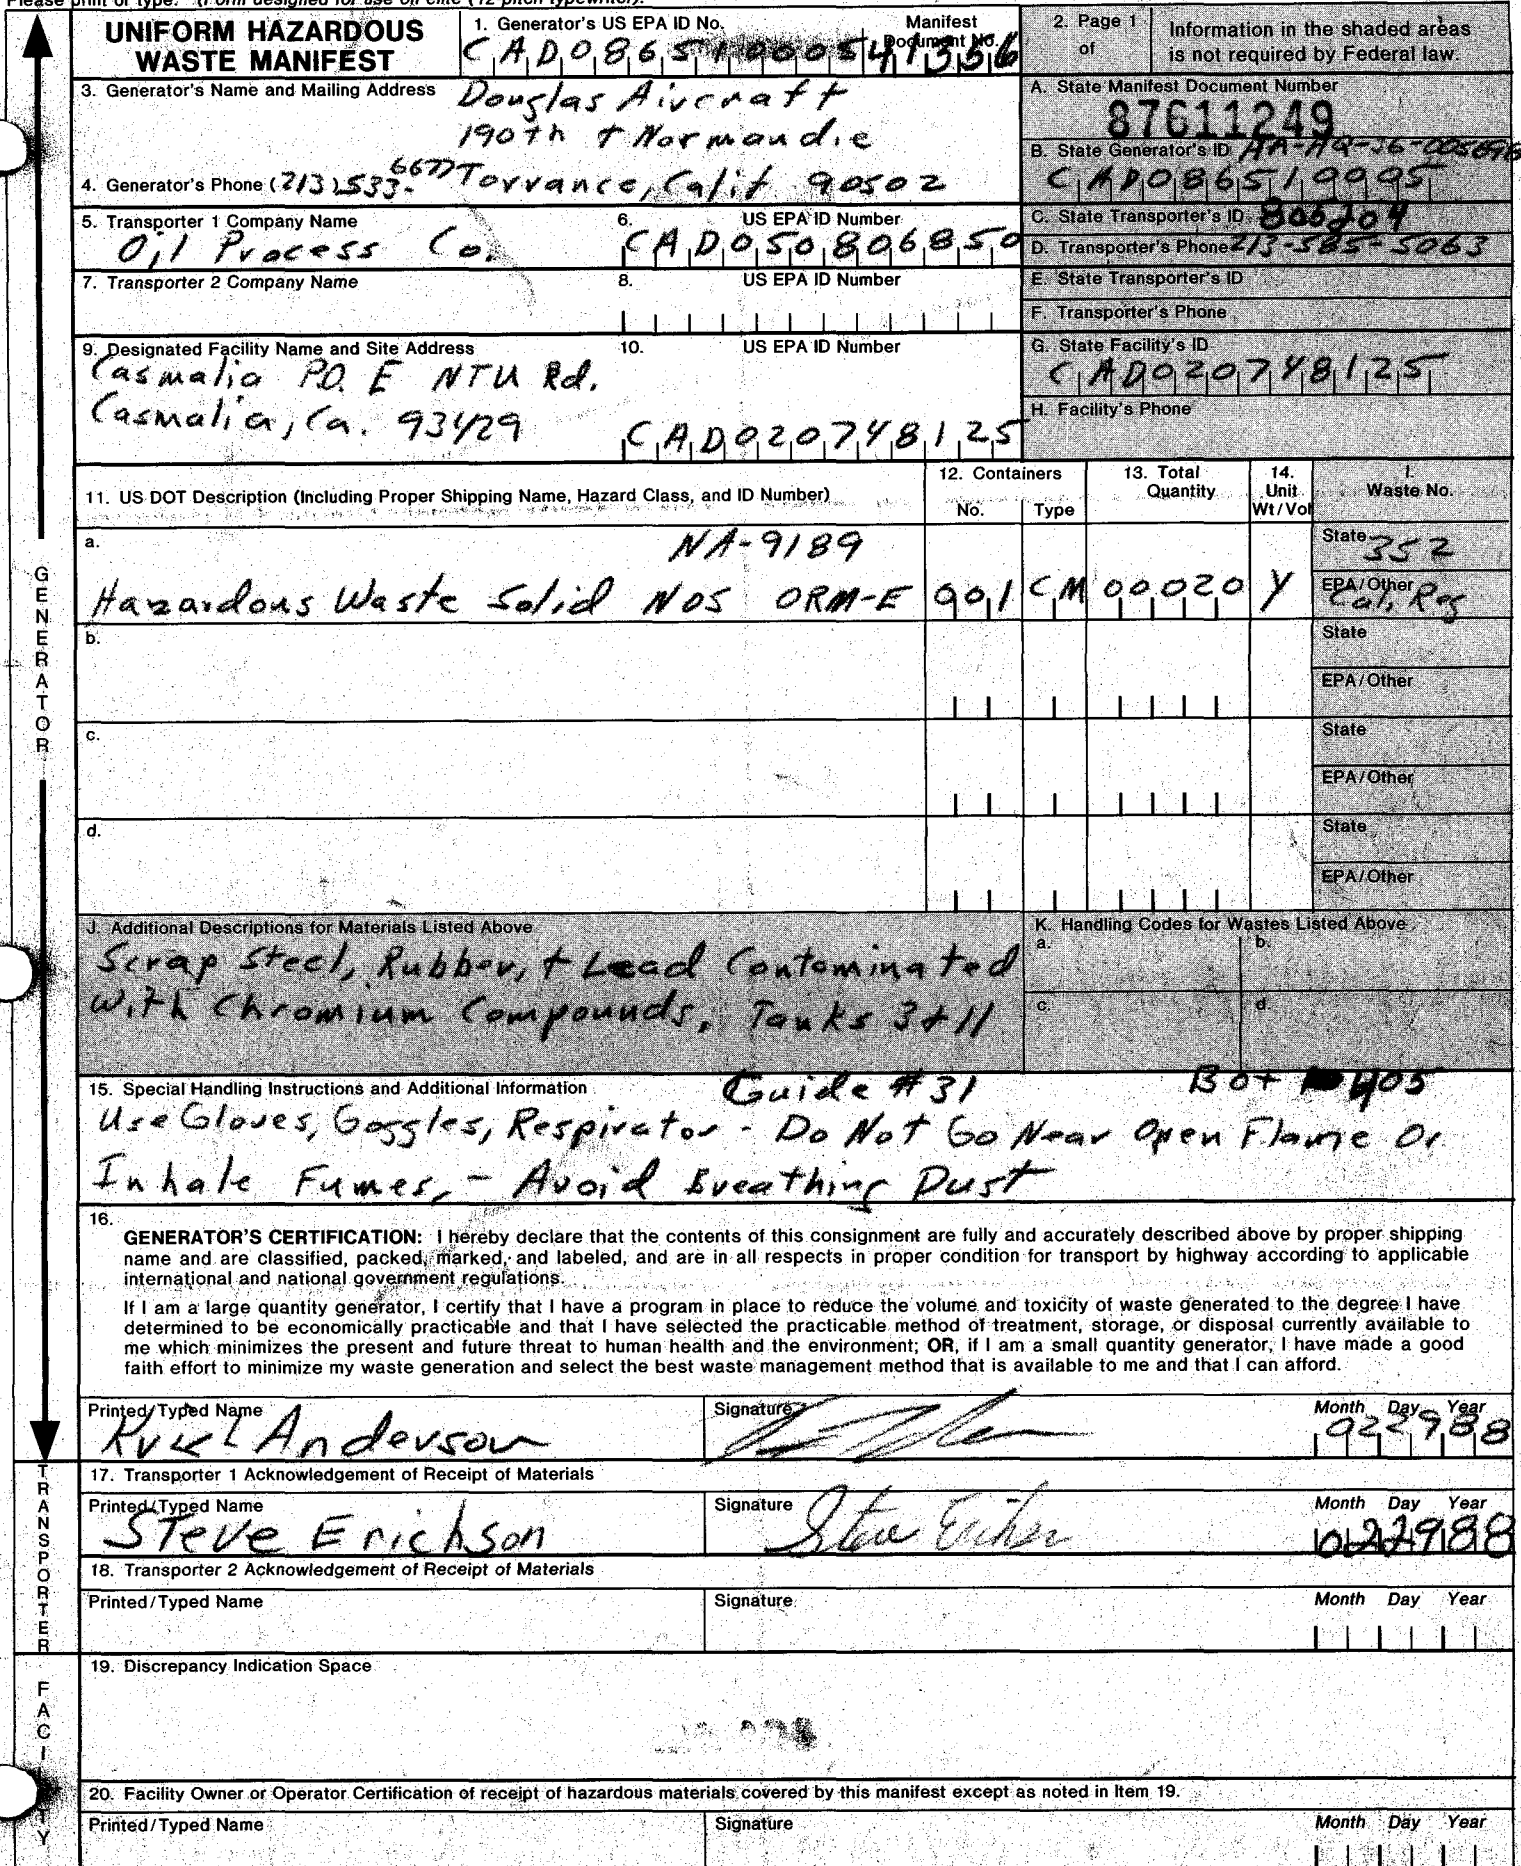 Please print or type. (Form designed for use on elite (12-pitch typewriter).
UNIFORM HAZARDOUS
WASTE MANIFEST
1. Generator's US EPA ID No.
CAD086510005
Manifest
Document No.
41356
2. Page 1
of
Information in the shaded areas
is not required by Federal law.
3. Generator's Name and Mailing Address
Douglas Aircraft
190th + Normandie
Torrance, Calif 90502
4. Generator's Phone (213) 533-6677
A. State Manifest Document Number
87611249
B. State Generator's ID
CAD086510005
5. Transporter 1 Company Name
Oil Process Co.
6. US EPA ID Number
CAD050806850
C. State Transporter's ID
D. Transporter's Phone 213-585-5063
7. Transporter 2 Company Name
8. US EPA ID Number
E. State Transporter's ID
F. Transporter's Phone
9. Designated Facility Name and Site Address
Casmalia P.O. E NTU Rd.
Casmalia, Ca. 93429
10. US EPA ID Number
CAD020748125
G. State Facility's ID
CAD020748125
H. Facility's Phone
11. US DOT Description (Including Proper Shipping Name, Hazard Class, and ID Number)
12. Containers
No. Type
13. Total
Quantity
14.
Unit
Wt/Vol
I.
Waste No.
a.
NA-9189
Hazardous Waste Solid NOS ORM-E 001 CM 00020 Y
State 352
EPA/Other
Cal. Reg
b.
State
EPA/Other
c.
State
EPA/Other
d.
State
EPA/Other
J. Additional Descriptions for Materials Listed Above
Scrap Steel, Rubber, + Lead Contominated
With Chromium Compounds, Tanks 3+11
K. Handling Codes for Wastes Listed Above
a. b.
c. d.
15. Special Handling Instructions and Additional Information
Guide #31
405
Use Gloves, Goggles, Respirator - Do Not Go Near Open Flame Or
Inhale Fumes, - Avoid Breathing Dust
16.
GENERATOR'S CERTIFICATION: I hereby declare that the contents of this consignment are fully and accurately described above by proper shipping
name and are classified, packed, marked, and labeled, and are in all respects in proper condition for transport by highway according to applicable
international and national government regulations.
If I am a large quantity generator, I certify that I have a program in place to reduce the volume and toxicity of waste generated to the degree I have
determined to be economically practicable and that I have selected the practicable method of treatment, storage, or disposal currently available to
me which minimizes the present and future threat to human health and the environment; OR, if I am a small quantity generator, I have made a good
faith effort to minimize my waste generation and select the best waste management method that is available to me and that I can afford.
Printed/Typed Name
Anderson
Signature
Month Day Year
022988
17. Transporter 1 Acknowledgement of Receipt of Materials
Printed/Typed Name
Steve Erichson
Signature
Steve
Month Day Year
022988
18. Transporter 2 Acknowledgement of Receipt of Materials
Printed/Typed Name
Signature
Month Day Year
19. Discrepancy Indication Space
20. Facility Owner or Operator Certification of receipt of hazardous materials covered by this manifest except as noted in Item 19.
Printed/Typed Name
Signature
Month Day Year
GENERATOR
TRANSPORTER